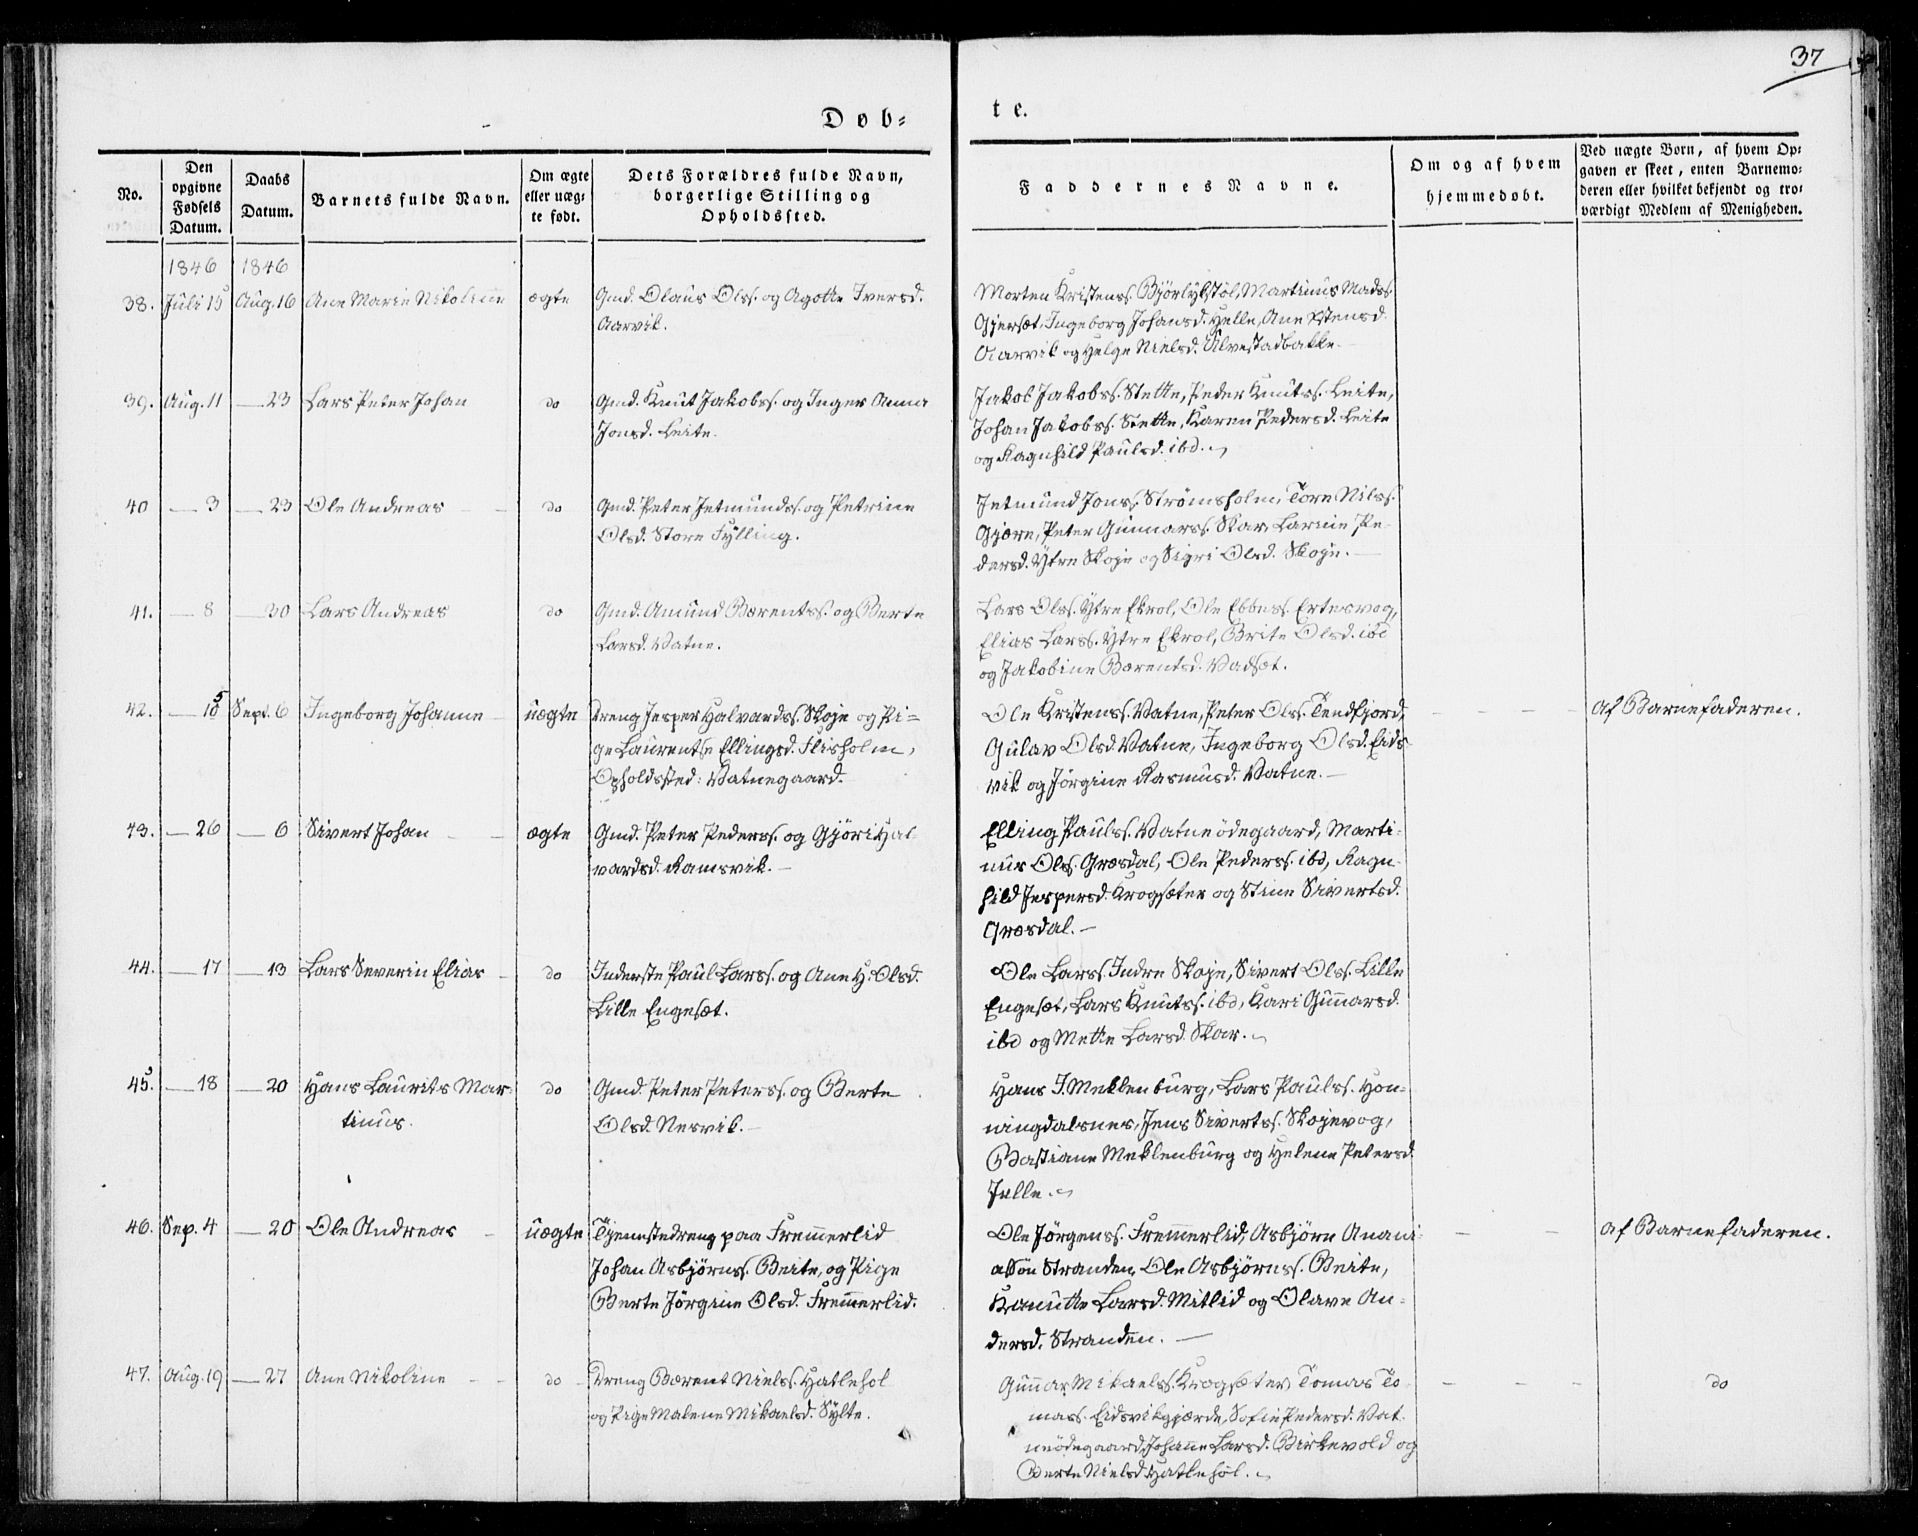 37
Døb-
te.
No.
Den opgivne Fødsels Datum.
Daabs Datum.
Barnets fulde Navn.
Om ægte eller uægte født.
Dets Forældres fulde Navn, borgerlige Stilling og Opholdssted.
Faddernes Navne.
Om og af hvem hjemmedøbt.
Ved uægte Børn, af hvem Opgaven er skeet, enten Barnemoderen eller hvilket bekjendt og troværdigt Medlem af Menigheden.
1846 1846
38. Juli 15 Aug. 16 Ane Marie Nikoline ægte
Gmd. Olaus Olss. og Agotte Iversd.
Aarvik.
Morten Kristenss. Bjørlykstøl, Martinus Madss.
Gjersæt, Ingeborg Johansd. Helle, Ane Østensd.
Aarvik og Helge Nielsd. Ulvestadbakke.
39. Aug. 11 — 23 Lars Peter Johan do
Gmd. Knut Jakobss. og Inger Anna
Jonsd. Leite.
Jakob Jakobss. Stette, Peder Knutss. Leite,
Johan Jakobss. Stette, Karen Pedersd. Leite
og Ragnhild Paulsd. ibd.
40 — 3 — 23 Ole Andreas do
Gmd. Peter Jetmundss. og Petrine
Olsd. Store Fylling.
Jetmund Jonss. Strømsholm, Tore Nilss.
Gjære, Peter Gunnarss. Skar, Larine Pe-
dersd. Ytre Skoje og Sigri Olsd. Skoje.
41. — 8 — 30 Lars Andreas do
Gmd. Amund Bærentss. og Berte
Larsd. Vatne.
Lars Olss. Ytre Ekrol, Ole Ebbess. Ertesvog,
Elias Larss. Ytre Ekrol, Brite Olsd. ibd
og Jakobine Bærentsd. Vadset.
42. — 15 Sept. 6 Ingeborg Johanne uægte
Dreng Jesper Halvardss. Skoje og Pi-
ge Laurentse Ellingsd. Flisholm,
Opholdssted: Vatnegaard.
Ole Kristenss. Vatne, Peter Olss. Tendfjord,
Gulav Olsd. Vatne, Ingeborg Olsd. Eids-
vik og Jørgine Rasmusd. Vatne.
af Barnefaderen.
43. — 26 — 6 Sivert Johan ægte
Gmd. Peter Pederss. og Gjøri Hal-
vardsd. Ramsvik.
Elling Paulss. Vatneødegaard, Marti-
nus Olss. Græsdal, Ole Pederss. ibd, Ragn-
hild Jespersd. Krogsæter og Stine Sivertsd.
Græsdal.
44. — 17 — 13 Lars Severin Elias do
Inderste Paul Larss. og Ane H. Olsd.
Lille Engesæt.
Ole Larss. Indre Skoje, Sivert Olss. Lille
Engesæt, Lars Knutss. ibd, Kari Gunnarsd.
ibd og Mette Larsd. Skar.
45. — 18 — 20 Hans Laurits Mar-
tinus. do
Gmd. Peter Peterss. og Berte
Olsd. Nesvik.
Hans J. Meklenburg, Lars Paulss. Hon-
ningdalsnes, Jens Sivertss. Skojevog,
Bastiane Meklenburg og Helene Petersd.
Jelle.
46. Sep. 4 — 20 Ole Andreas uægte
Tjenestedreng paa Fremmerlid
Johan Asbjørnss. Beite, og Pige
Berte Jørgine Olsd. Fremmerlid.
Ole Jørgenss. Fremmerlid, Asbjørn Anani-
asson Stranden, Ole Asbjørnss. Beite,
Kanutte Larsd. Mitlid og Olave An-
dersd. Stranden.
af Barnefaderen.
47. Aug. 19 — 27 Ane Nikoline do
Dreng Bærent Nielss. Hatlehol
og Pige Malene Mikaelsd. Sylte.
Gunnar Mikaelss. Krogsæter, Tomas To-
mass. Eidsvikgjærde, Sofie Pedersd. Vat-
neødegaard, Johanne Larsd. Birkevold og
Berte Nielsd. Hatlehol.
do